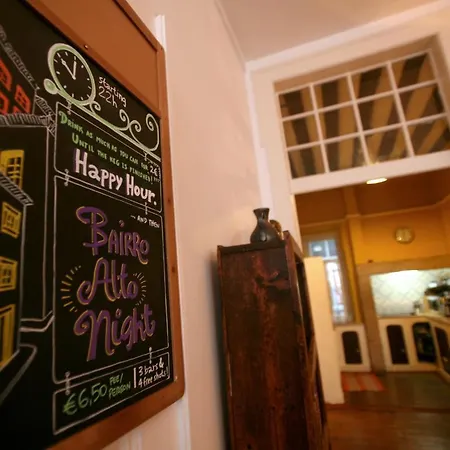 starting
22h
DRINK AS MUCH AS YOU CAN FOR 2€
UNTIL THE KEG IS FINISHED!!!
Happy Hour.
... AND THEN
BAIRRO
Alto
Night
€6,50 PER/
PERSON
3 bars &
4 free shots!